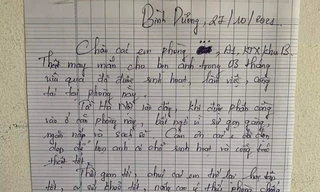 Bình Dương, 27/10/2021
Chào các em phòng A1, KTX khu B.
Thật may mắn cho bọn anh trong 03 tháng
vừa qua đã được sinh hoạt, làm việc, công
tác tại phòng này.
Từ Hà Nội vào đây, khi được phân công
vào ở căn phòng này, bất ngờ vì sự gọn gàng,
ngăn nắp và sạch sẽ. Cảm ơn các em đã dọn
dẹp để bọn anh có chỗ sinh hoạt và công tác
thật tốt.
Thời gian tới, chúc các em trở lại học tập
tốt, có sức khoẻ tốt, nâng cao ý thức phòng chống